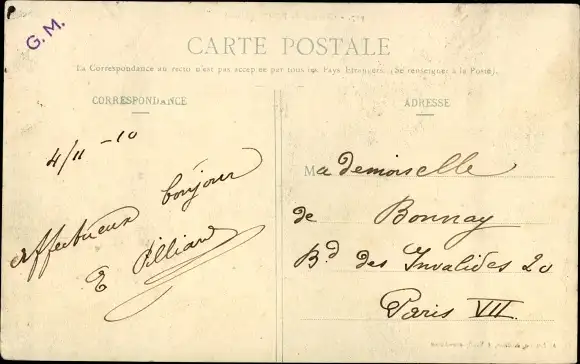 G.M.
CARTE POSTALE
La Correspondance au recto n'est pas acceptée par tous les Pays Etrangers. (Se renseigner à la Poste).
CORRESPONDANCE
4/11 - 10
Affectueux bonjour
E Pilliard
ADRESSE
Mademoiselle
de Bonnay
Bd des Invalides 20
Paris VII.